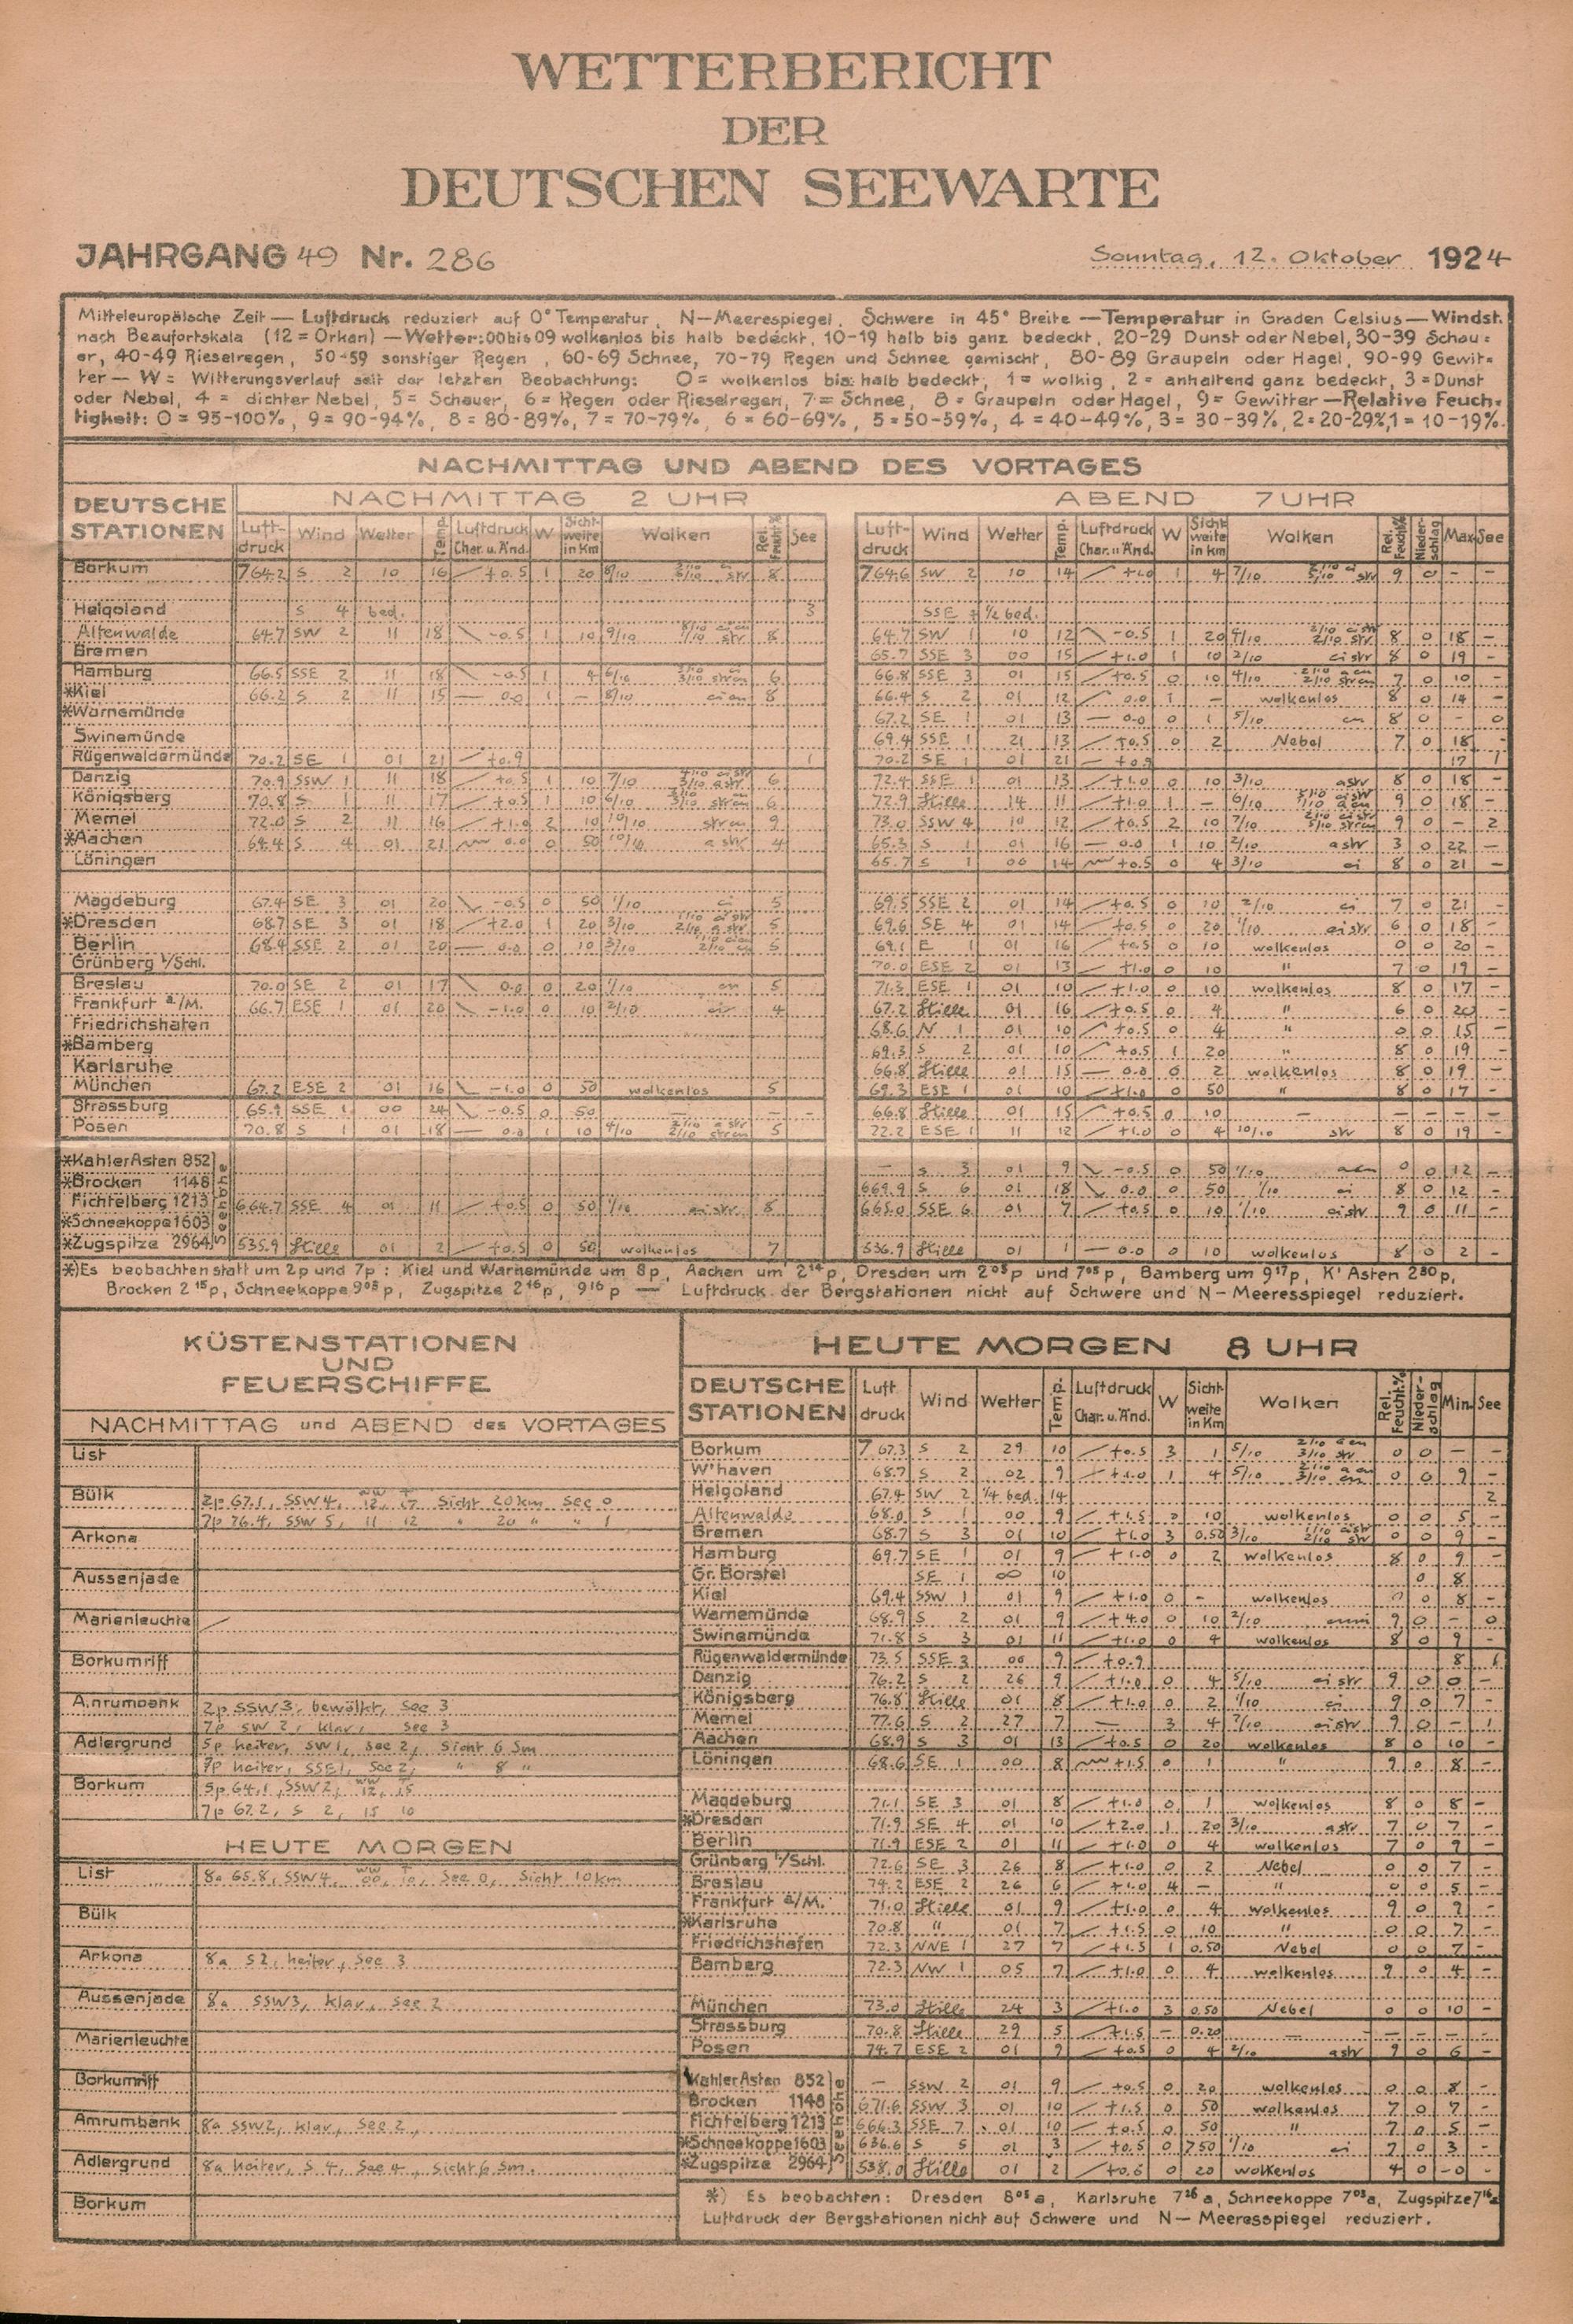 WETTERBERICHT
DER
DEUTSCHEN SEEWARTE
JAHRGANG 49 Nr. 286 Sonntag, 12. Oktober 1924
Mitteleuropäische Zeit — Luftdruck reduziert auf 0° Temperatur, N—Meerespiegel, Schwere in 45° Breite —Temperatur in Graden Celsius—Windst.
nach Beaufortskala (12 = Orkan) —Wetter: 00 bis 09 wolkenlos bis halb bedeckt, 10-19 halb bis ganz bedeckt, 20-29 Dunst oder Nebel, 30-39 Schau-
er, 40-49 Rieselregen, 50-59 sonstiger Regen, 60-69 Schnee, 70-79 Regen und Schnee gemischt, 80-89 Graupeln oder Hagel, 90-99 Gewit-
ter — W = Witterungsverlauf seit der letzten Beobachtung: 0 = wolkenlos bis halb bedeckt, 1 = wolkig, 2 = anhaltend ganz bedeckt, 3 = Dunst
oder Nebel, 4 = dichter Nebel, 5 = Schauer, 6 = Regen oder Rieselregen, 7 = Schnee, 8 = Graupeln oder Hagel, 9 = Gewitter —Relative Feuch-
tigkeit: 0 = 95-100%, 9 = 90-94%, 8 = 80-89%, 7 = 70-79%, 6 = 60-69%, 5 = 50-59%, 4 = 40-49%, 3 = 30-39%, 2 = 20-29%, 1 = 10-19%.
NACHMITTAG UND ABEND DES VORTAGES
DEUTSCHE STATIONEN NACHMITTAG 2 UHR ABEND 7 UHR
Luft-druck Wind Wetter Temp. Luftdruck Char. u. Änd. W Sicht-weite in Km Wolken Rel. Feucht.% See Luft-druck Wind Wetter Temp. Luftdruck Char. u. Änd. W Sicht-weite in Km Wolken Rel. Feucht.% Nieder-schlag Max See
Borkum 764.2 S 2 10 16 +0.5 1 20 8 764.6 SW 2 10 14 +1.0 1 4 7/10 9 0 - -
Helgoland S 4 bed. 3 SSE ½ bed.
Altenwalde 64.7 SW 2 11 18 -0.5 1 10 9/10 8 64.7 SW 1 10 12 -0.5 1 20 8 0 18 -
Bremen 65.7 SSE 3 00 15 +1.0 1 10 2/10 ci str 8 0 19 -
Hamburg 66.5 SSE 2 11 18 -0.5 1 4 6/10 6 66.8 SSE 3 01 15 +0.5 0 10 4/10 7 0 10 -
*Kiel 66.2 S 2 11 15 — 0.0 1 - 8/10 8 66.4 S 2 01 12 0.0 1 - wolkenlos 8 0 14 -
*Warnemünde 67.2 SE 1 01 13 — 0.0 0 1 5/10 8 0 - 0
Swinemünde 69.4 SSE 1 21 13 +0.5 0 2 Nebel 7 0 18 -
Rügenwaldermünde 70.2 SE 1 01 21 +0.9 1 70.2 SE 1 01 21 +0.9 17 1
Danzig 70.9 SSW 1 11 18 +0.5 1 10 7/10 6 72.4 SSE 1 01 13 +1.0 0 10 3/10 astr 8 0 18 -
Königsberg 70.8 S 1 11 17 +0.5 1 10 6/10 6 72.9 Stille 14 11 +1.0 1 - 6/10 9 0 18 -
Memel 72.0 S 2 11 16 +1.0 2 10 10/10 9 73.0 SSW 4 10 12 +0.5 2 10 7/10 9 0 - 2
*Aachen 64.4 S 4 01 21 0.0 50 a str 4 65.3 S 1 01 16 — 0.0 1 10 2/10 astr 3 0 22 -
Löningen 65.7 S 1 00 14 +0.5 0 4 3/10 ci 8 0 21 -
Magdeburg 67.4 SE 3 01 20 -0.5 0 50 1/10 ci 5 69.5 SSE 2 01 14 +0.5 0 10 2/10 ci 7 0 21 -
*Dresden 68.7 SE 3 01 18 +2.0 1 20 3/10 5 69.6 SE 4 01 14 +0.5 0 20 1/10 ci str 6 0 18 -
Berlin 68.4 SSE 2 01 20 — 0.0 0 10 3/10 5 69.1 E 1 01 16 +0.5 0 10 wolkenlos 0 0 20 -
Grünberg i/Schl. 70.0 ESE 2 01 13 +1.0 0 10 " 7 0 19 -
Breslau 70.0 SE 2 01 17 0.0 0 20 1/10 5 71.3 ESE 1 01 10 +1.0 0 10 wolkenlos 8 0 17 -
Frankfurt a/M. 66.7 ESE 1 01 20 -1.0 0 10 2/10 4 67.2 Stille 01 16 +0.5 0 4 " 6 0 20 -
Friedrichshafen 68.6 N 1 01 10 +0.5 0 4 " 0 0 15 -
*Bamberg 69.3 S 2 01 10 +0.5 1 20 " 8 0 19 -
Karlsruhe 66.8 Stille 01 15 — 0.0 0 2 wolkenlos 8 0 19 -
München 67.2 ESE 2 01 16 -1.0 0 50 wolkenlos 5 69.3 ESE 1 01 10 +1.0 0 50 " 8 0 17 -
Strassburg 65.9 SSE 1 00 24 -0.5 0 50 — - - 66.8 Stille 01 15 +0.5 0 10 — - - - -
Posen 70.8 S 1 01 18 — 0.0 1 10 4/10 5 72.2 ESE 1 11 12 +1.0 0 4 10/10 str 8 0 19 -
Seehöhe
*Kahler Asten 852 — S 3 01 9 -0.5 0 50 1/10 0 0 12 -
*Brocken 1148 669.9 S 6 01 18 0.0 0 50 1/10 ci 8 0 12 -
Fichtelberg 1213 664.7 SSE 4 01 11 +0.5 0 50 1/10 ci str 8 665.0 SSE 6 01 7 +0.5 0 10 1/10 ci str 9 0 11 -
*Schneekoppe 1603
*Zugspitze 2964 535.9 Stille 01 2 +0.5 0 50 wolkenlos 7 536.9 Stille 01 1 — 0.0 0 10 wolkenlos 8 0 2 -
*) Es beobachten statt um 2p und 7p: Kiel und Warnemünde um 8p, Aachen um 2¹⁴p, Dresden um 2⁰⁵p und 7⁰⁵p, Bamberg um 9¹⁷p, K' Asten 2³⁰p,
Brocken 2¹⁵p, Schneekoppe 9⁰⁵p, Zugspitze 2¹⁶p, 9¹⁶p — Luftdruck der Bergstationen nicht auf Schwere und N—Meeresspiegel reduziert.
KÜSTENSTATIONEN
UND
FEUERSCHIFFE
NACHMITTAG und ABEND des VORTAGES
List
Bülk 2p 67.1, SSW 4, ww 12, T 17 Sicht 20 km See 0
7p 76.4, SSW 5, 11 12 " 20 " " 1
Arkona
Aussenjade
Marienleuchte
Borkumriff
Amrumbank 2p SSW 3, bewölkt, See 3
7p SW 2, klar, See 3
Adlergrund 5p heiter, SW 1, See 2, Sicht 6 Sm
7p heiter, SSE 1, See 2, " 8 "
Borkum 5p 64.1, SSW 2, ww 12, T 15
7p 67.2, S 2, 15 10
HEUTE MORGEN
List 8a 65.8, SSW 4, ww 00, T 10, See 0, Sicht 10 km
Bülk
Arkona 8a S 2, heiter, See 3
Aussenjade 8a SSW 3, klar, See 2
Marienleuchte
Borkumriff
Amrumbank 8a SSW 2, klar, See 2,
Adlergrund 8a heiter, S 4, See 4, Sicht 6 Sm.
Borkum
HEUTE MORGEN 8 UHR
DEUTSCHE STATIONEN Luft druck Wind Wetter Temp. Luftdruck Char. u. Änd. W Sicht-weite in Km Wolken Rel. Feucht.% Nieder-schlag Min. See
Borkum 767.3 S 2 29 10 +0.5 3 1 5/10 0 0 - -
W'haven 68.7 S 2 02 9 +1.0 1 4 5/10 0 0 9 -
Helgoland 67.4 SW 2 ¼ bed. 14 2
Altenwalde 68.0 S 1 00 9 +1.5 0 10 wolkenlos 0 0 5 -
Bremen 68.7 S 3 01 10 +1.0 3 0.50 3/10 0 0 9 -
Hamburg 69.7 SE 1 01 9 +1.0 0 2 wolkenlos 8 0 9 -
Gr. Borstel SE 1 10 0 8
Kiel 69.4 SSW 1 01 9 +1.0 0 - wolkenlos 0 8 -
Warnemünde 68.9 S 2 01 9 +4.0 0 10 2/10 9 0 - 0
Swinemünde 71.8 S 3 01 11 +1.0 0 4 wolkenlos 8 0 9 -
Rügenwaldermünde 73.5 SSE 3 00 9 +0.9 8 1
Danzig 76.2 S 2 26 9 +1.0 0 4 5/10 ci str 9 0 0 -
Königsberg 76.8 Stille 01 8 +1.0 0 2 1/10 ci 9 0 7 -
Memel 77.6 S 2 27 7 — 3 4 7/10 ci str 9 0 - 1
Aachen 68.9 S 3 01 13 +0.5 0 20 wolkenlos 8 0 10 -
Löningen 68.6 SE 1 00 8 +1.5 0 1 " 9 0 8 -
Magdeburg 71.1 SE 3 01 8 +1.0 0 1 wolkenlos 8 0 8 -
*Dresden 71.9 SE 4 01 10 +2.0 1 20 3/10 astr 7 0 7 -
Berlin 71.9 ESE 2 01 11 +1.0 0 4 wolkenlos 7 0 9 -
Grünberg i/Schl. 72.6 SE 3 26 8 +1.0 0 2 Nebel 0 0 7 -
Breslau 74.2 ESE 2 26 6 +1.0 4 — " 0 0 5 -
Frankfurt a/M. 71.0 Stille 01 9 +1.0 0 4 wolkenlos 9 0 9 -
*Karlsruhe 70.8 " 01 7 +1.5 0 10 " 0 0 7 -
Friedrichshafen 72.3 NNE 1 27 7 +1.5 1 0.50 Nebel 0 0 7 -
Bamberg 72.3 NW 1 05 7 +1.0 0 4 wolkenlos 9 0 4 -
München 73.0 Stille 24 3 +1.0 3 0.50 Nebel 0 0 10 -
Strassburg 70.8 Stille 29 5 +1.5 — 0.20 — - - - -
Posen 74.7 ESE 2 01 9 +0.5 0 4 2/10 astr 9 0 6 -
Seehöhe
Kahler Asten 852 — SSW 2 01 9 +0.5 0 20 wolkenlos 0 0 8 -
Brocken 1148 671.6 SSW 3 01 10 +1.5 0 50 wolkenlos 7 0 7 -
Fichtelberg 1213 666.3 SSE 7 01 10 +0.5 0 50 " 7 0 5 -
*Schneekoppe 1603 636.6 S 5 01 3 +0.5 0 750 1/10 ci 7 0 3 -
*Zugspitze 2964 538.0 Stille 01 2 +0.6 0 20 wolkenlos 4 0 -0 -
*) Es beobachten: Dresden 8⁰⁵a, Karlsruhe 7²⁶a, Schneekoppe 7⁰³a, Zugspitze 7¹⁶a
Luftdruck der Bergstationen nicht auf Schwere und N—Meeresspiegel reduziert.